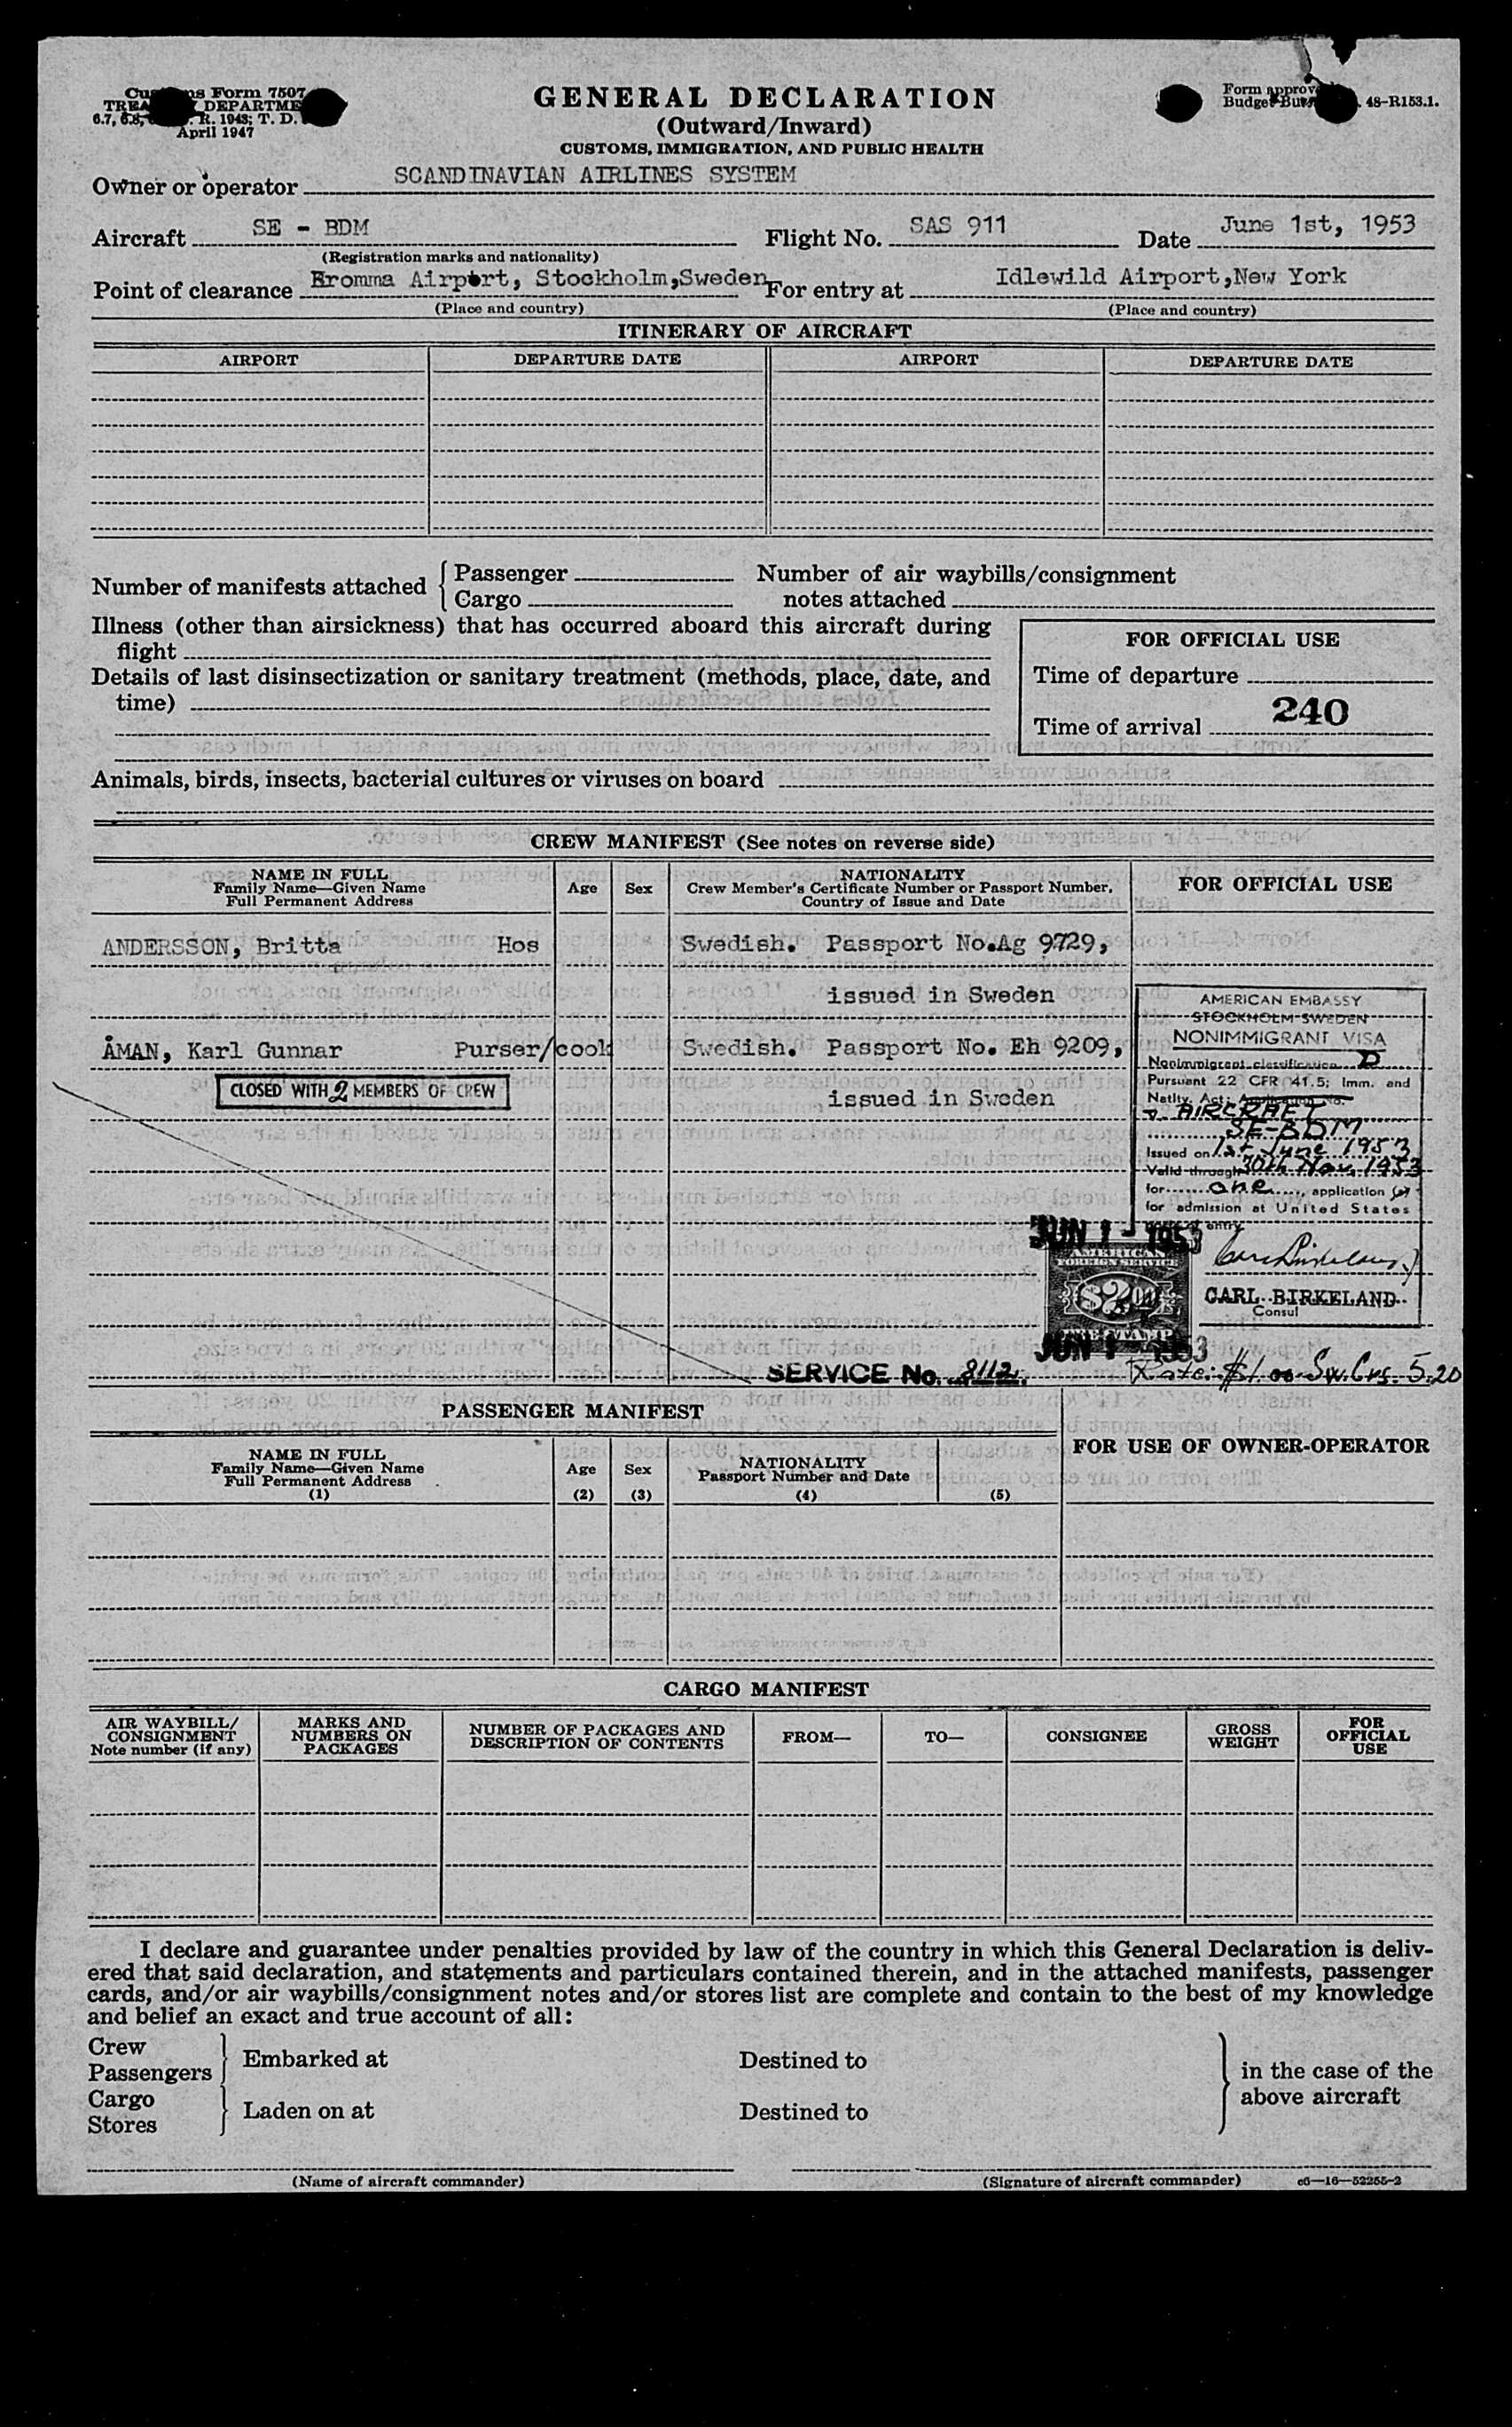 Customs Form 7507
TREASURY DEPARTMENT
6.7, 6.8, R. 1943; T. D.
April 1947
GENERAL DECLARATION
(Outward/Inward)
CUSTOMS, IMMIGRATION, AND PUBLIC HEALTH
Form approved
Budget Bureau 48-R153.1.
Owner or operator SCANDINAVIAN AIRLINES SYSTEM
Aircraft SE - BDM Flight No. SAS 911 Date June 1st, 1953
(Registration marks and nationality)
Point of clearance Bromma Airport, Stockholm,Sweden For entry at Idlewild Airport,New York
(Place and country) (Place and country)
ITINERARY OF AIRCRAFT
AIRPORT DEPARTURE DATE AIRPORT DEPARTURE DATE
Number of manifests attached { Passenger Number of air waybills/consignment
Cargo notes attached
Illness (other than airsickness) that has occurred aboard this aircraft during
flight
Details of last disinsectization or sanitary treatment (methods, place, date, and
time)
FOR OFFICIAL USE
Time of departure
240
Time of arrival
Animals, birds, insects, bacterial cultures or viruses on board
CREW MANIFEST (See notes on reverse side)
NAME IN FULL
Family Name—Given Name
Full Permanent Address
Age Sex
NATIONALITY
Crew Member's Certificate Number or Passport Number,
Country of Issue and Date
FOR OFFICIAL USE
ANDERSSON, Britta Hos Swedish. Passport No.Ag 9729,
issued in Sweden
ÅMAN, Karl Gunnar Purser/cook Swedish. Passport No. Eh 9209,
CLOSED WITH 2 MEMBERS OF CREW
issued in Sweden
AMERICAN EMBASSY
STOCKHOLM SWEDEN
NONIMMIGRANT VISA
Nonimmigrant classification D
Pursuant 22 CFR 41.5; Imm. and
Natlty. Act; Application No.
AIRCRAFT
SE-BDM
Issued on 1st June 1953
Valid through 30th Nov. 1953
for one, application (s)
for admission at United States
ports of entry
JUN 1 - 1953
AMERICAN
FOREIGN SERVICE
$2.00
FEE STAMP
JUN 1 - 1953
CARL BIRKELAND
Consul
SERVICE No. 8112
Rate: $1.00 Sw. Crs. 5.20
PASSENGER MANIFEST
NAME IN FULL
Family Name—Given Name
Full Permanent Address
(1)
Age
(2)
Sex
(3)
NATIONALITY
Passport Number and Date
(4) (5)
FOR USE OF OWNER-OPERATOR
CARGO MANIFEST
AIR WAYBILL/
CONSIGNMENT
Note number (if any)
MARKS AND
NUMBERS ON
PACKAGES
NUMBER OF PACKAGES AND
DESCRIPTION OF CONTENTS
FROM—
TO—
CONSIGNEE
GROSS
WEIGHT
FOR
OFFICIAL
USE
I declare and guarantee under penalties provided by law of the country in which this General Declaration is deliv-
ered that said declaration, and statements and particulars contained therein, and in the attached manifests, passenger
cards, and/or air waybills/consignment notes and/or stores list are complete and contain to the best of my knowledge
and belief an exact and true account of all:
Crew
Passengers } Embarked at Destined to
Cargo
Stores } Laden on at Destined to
} in the case of the
above aircraft
(Name of aircraft commander) (Signature of aircraft commander) c6—16—52255-2